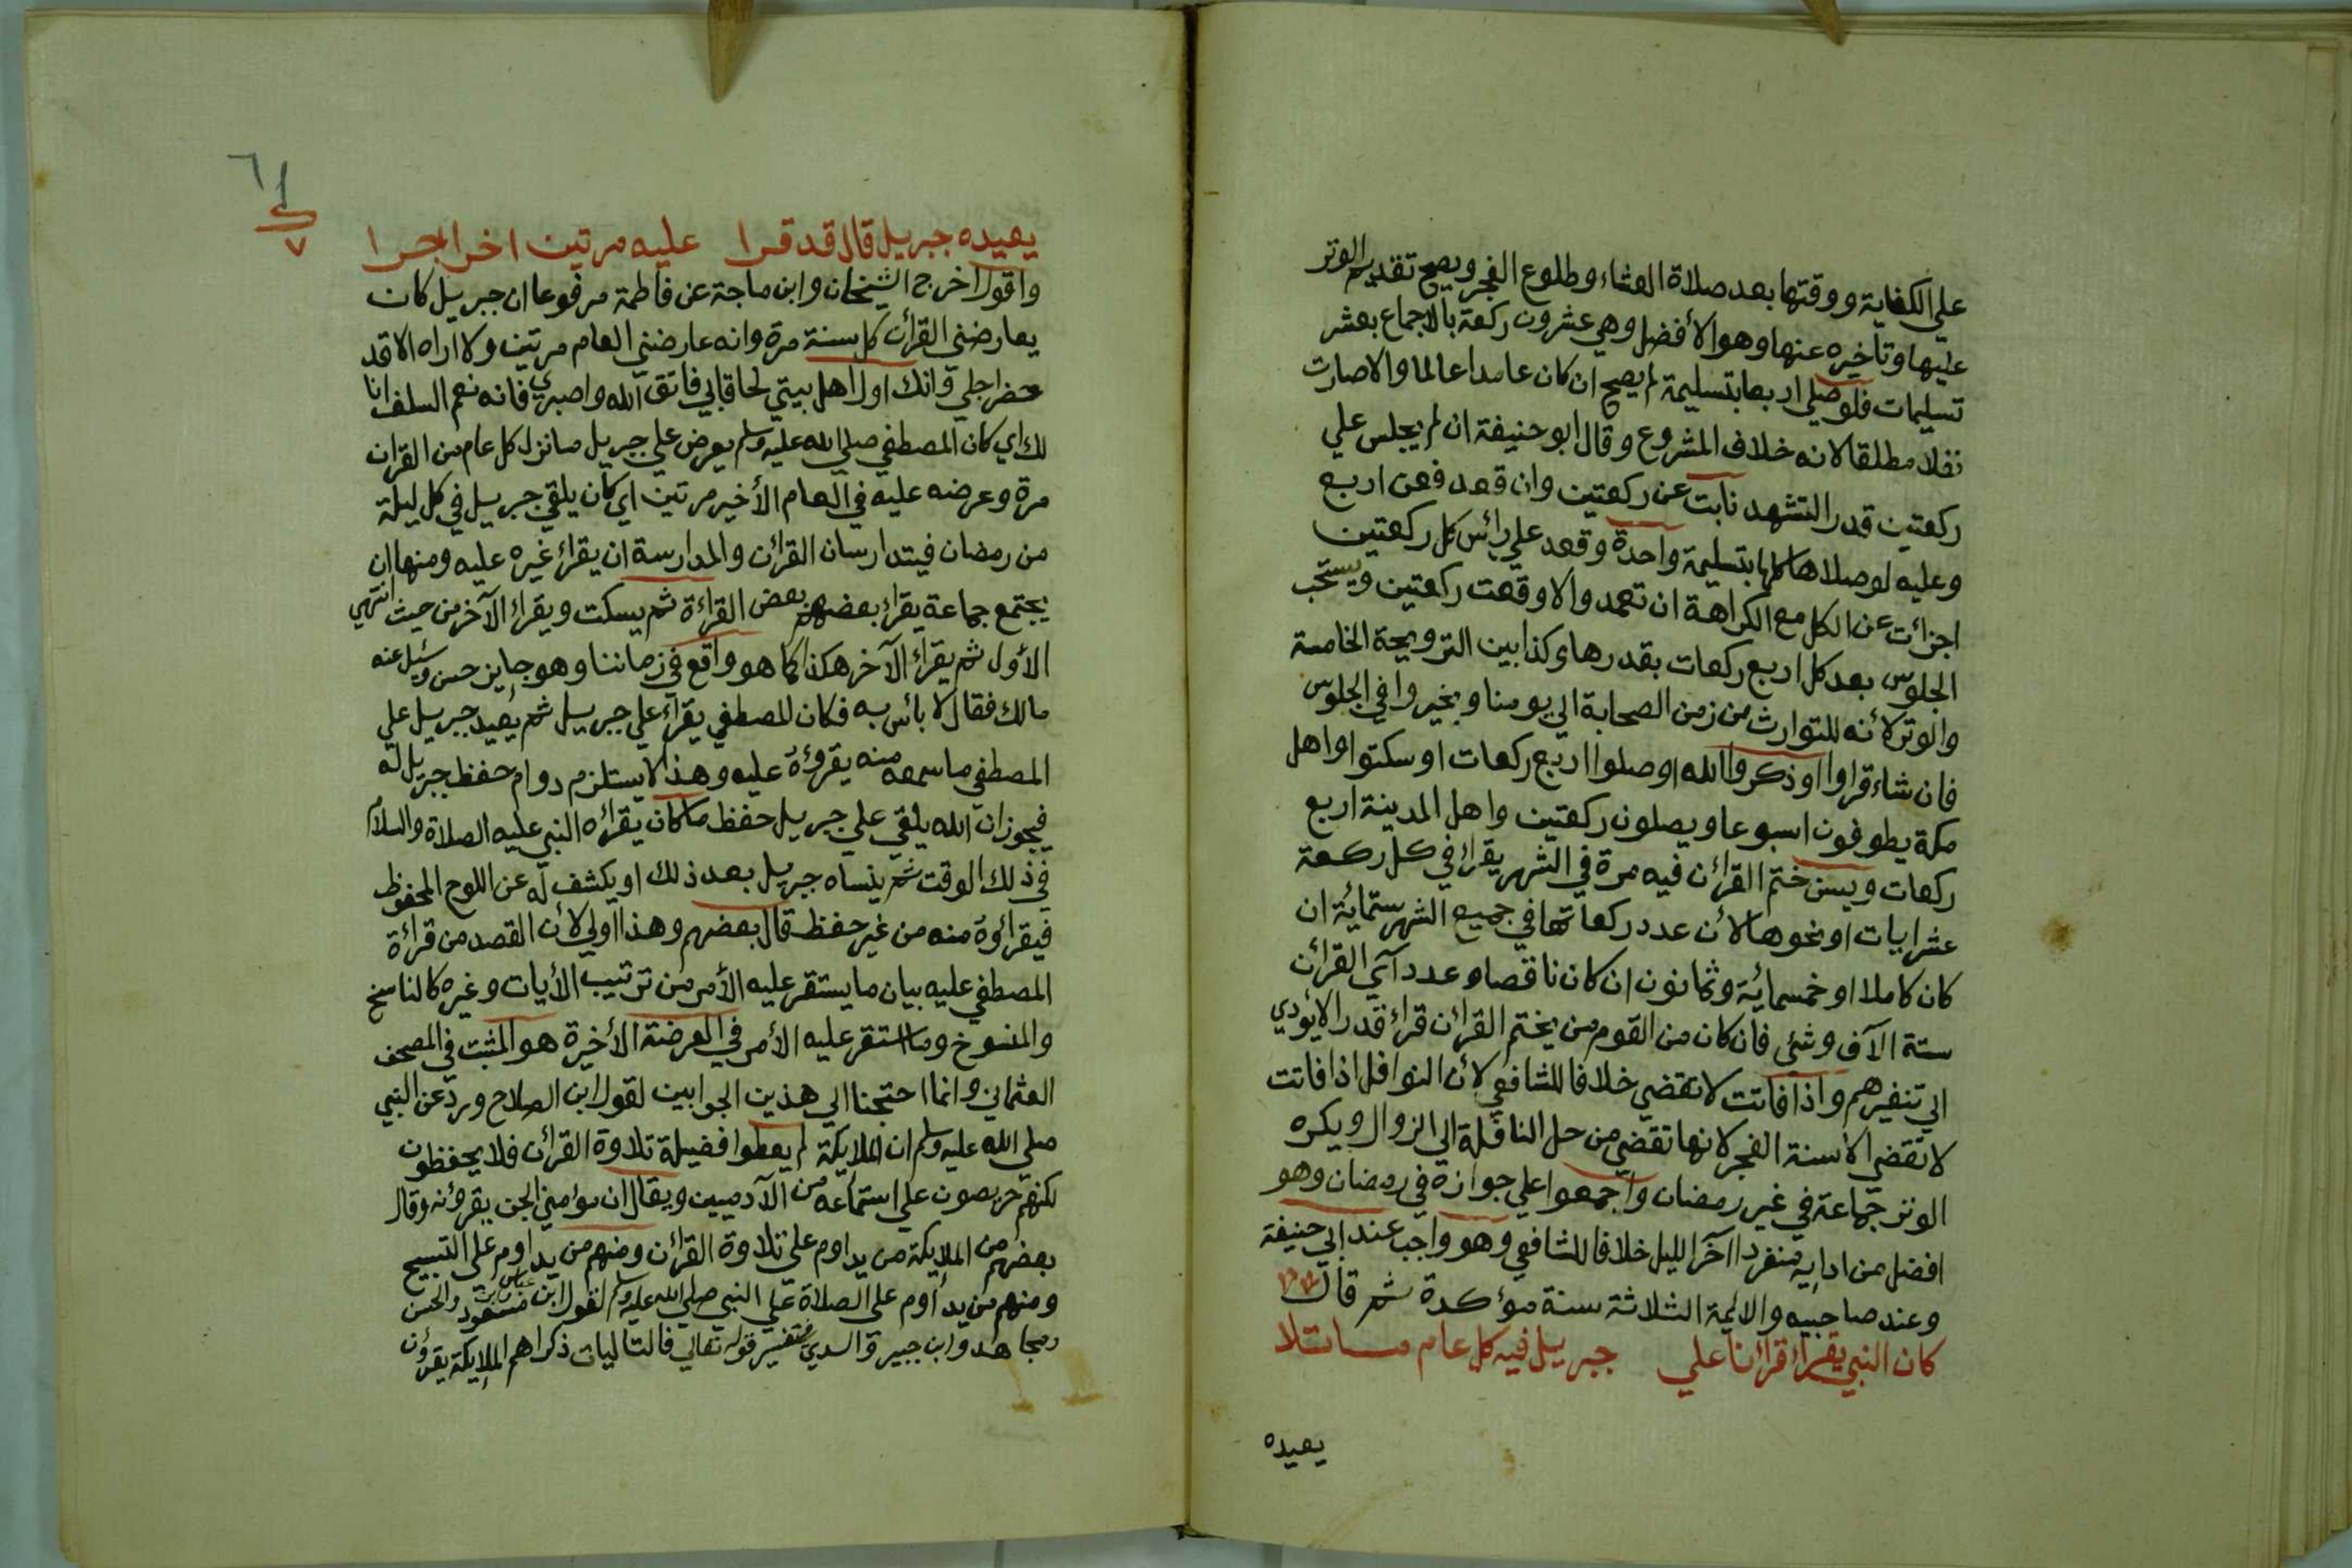 علي الكفاية ووقتها بعد صلاة العشاء وطلوع الفجر ويصح تقديم الوتر
عليها وتاخيره عنها وهو الأفضل وهي عشرون ركعة بالاجماع بعشر
تسليمات فلو صلي اربعا بتسليمة لم يصح ان كان عامدا عالما والاصارت
نفلا مطلقا لانه خلاف المشروع وقال ابو حنيفة ان لم يجلس علي
ركعتين قدر التشهد نابت عن ركعتين وان قعد فعن اربع
وعليه لو صلاها كلها بتسليمة واحدة وقعد علي رائس كل ركعتين
اجزائت عن الكل مع الكراهة ان تعمد والا وقعت ركعتين ويستحب
الجلوس بعد كل اربع ركعات بقدرها وكذا بين الترويحة الخامسة
والوتر لأنه للتوارث من زمن الصحابة الي يومنا ويخيروا في الجلوس
فان شاء قراوا او ذكروا الله او صلوا اربع ركعات او سكتوا واهل
مكة يطوفون اسبوعا ويصلون ركعتين واهل المدينة اربع
ركعات ويسن ختم القرائن فيه مرة في الشهر يقراء في كل ركعة
عشر ايات او نحوها لأن عدد ركعاتها في جميع الشهر ستمائة ان
كان كاملا او خمسمائة وثمانون ان كان ناقصا وعدد آي القرائن
ستة الآف وشئي فان كان من القوم من يختم القرائن قراء قدر الايؤدي
الي تنفيرهم واذا فاتت لاتقضي خلافا للشافعي لأن النوافل اذا فاتت
لاتقضي الاسنة الفجر لانها تقضي من حل النافلة الي الزوال ويكره
الوتر جماعة في غير رمضان واجمعوا علي جوازه في رمضان وهو
افضل من ادايه منفردا اخر الليل خلافا للشافعي وهو واجب عند ابي حنيفة
وعند صاحبيه والائمة الثلاثة سنة مؤكدة ثم قال
كان النبي يقراء قرائنا علي جبريل فيه كل عام ما تلا
يعيده
٦١
٧
يعيده جبريل قال قد قرا عليه مرتين اخرا جرا
واقول اخرج الشيخان وابن ماجة عن فاطمة مرفوعا ان جبريل كان
يعارضني القرائن كل سنة مرة وانه عارضني العام مرتين ولا اراه الاقد
حضر اجلي وانك اول اهل بيتي لحاقا بي فاتق الله واصبري فانه نعم السلف انا
لك اي كان المصطفي صلي الله عليه وسلم يعرض علي جبريل ما نزل كل عام من القران
مرة وعرضه عليه في العام الأخير مرتين اي كان يلقي جبريل في كل ليلة
من رمضان فيتدارسان القرائن والمدارسة ان يقراء غيره عليه ومنها ان
يجتمع جماعة يقراء بعضهم بعض القراءة ثم يسكت ويقراء الآخر من حيث انتهي
الأول ثم يقراء الآخر هكذا كما هو واقع في زماننا وهو جايز حسن وسئل عنه
مالك فقال لا بائس به فكان المصطفي يقراء علي جبريل ثم يعيد جبريل علي
المصطفي ما سمعه منه يقروؤه عليه وهذا لايستلزم دوام حفظ جبريل له
فيجوز ان الله يلقي علي جبريل حفظ ما كان يقرائه النبي عليه الصلاة والسلام
في ذلك الوقت ثم ينساه جبريل بعد ذلك او يكشف له عن اللوح المحفوظ
فيقرائوه منه من غير حفظ قال بعضهم وهذا اولي لأن القصد من قرائة
المصطفي عليه بيان ما يستقر عليه الأمر من ترتيب الأيات وغيره كالناسخ
والمنسوخ وما استقر عليه الأمر في العرضة الأخيرة هو المثبت في المصحف
العثماني وانما احتجنا الي هذين الجوابين لقول ابن الصلاح ورد عن النبي
صلي الله عليه وسلم ان الملايكة لم يعطوا فضيلة تلاوة القرائن فلا يحفظون
لكنهم حريصون علي استماعه من الآدميين ويقال ان مؤمني الجن يقروئنه وقال
بعضهم من الملايكة من يداوم علي تلاوة القرائن ومنهم من يداوم علي التسبيح
ومنهم من يداوم علي الصلاة علي النبي صلي الله عليه وسلم لقول ابن عباس وابن مسعود والحسن
ومجاهد وابن جبير والسدي في تفسير قوله تعالي فالتاليات ذكرا هم الملايكة يقرؤن